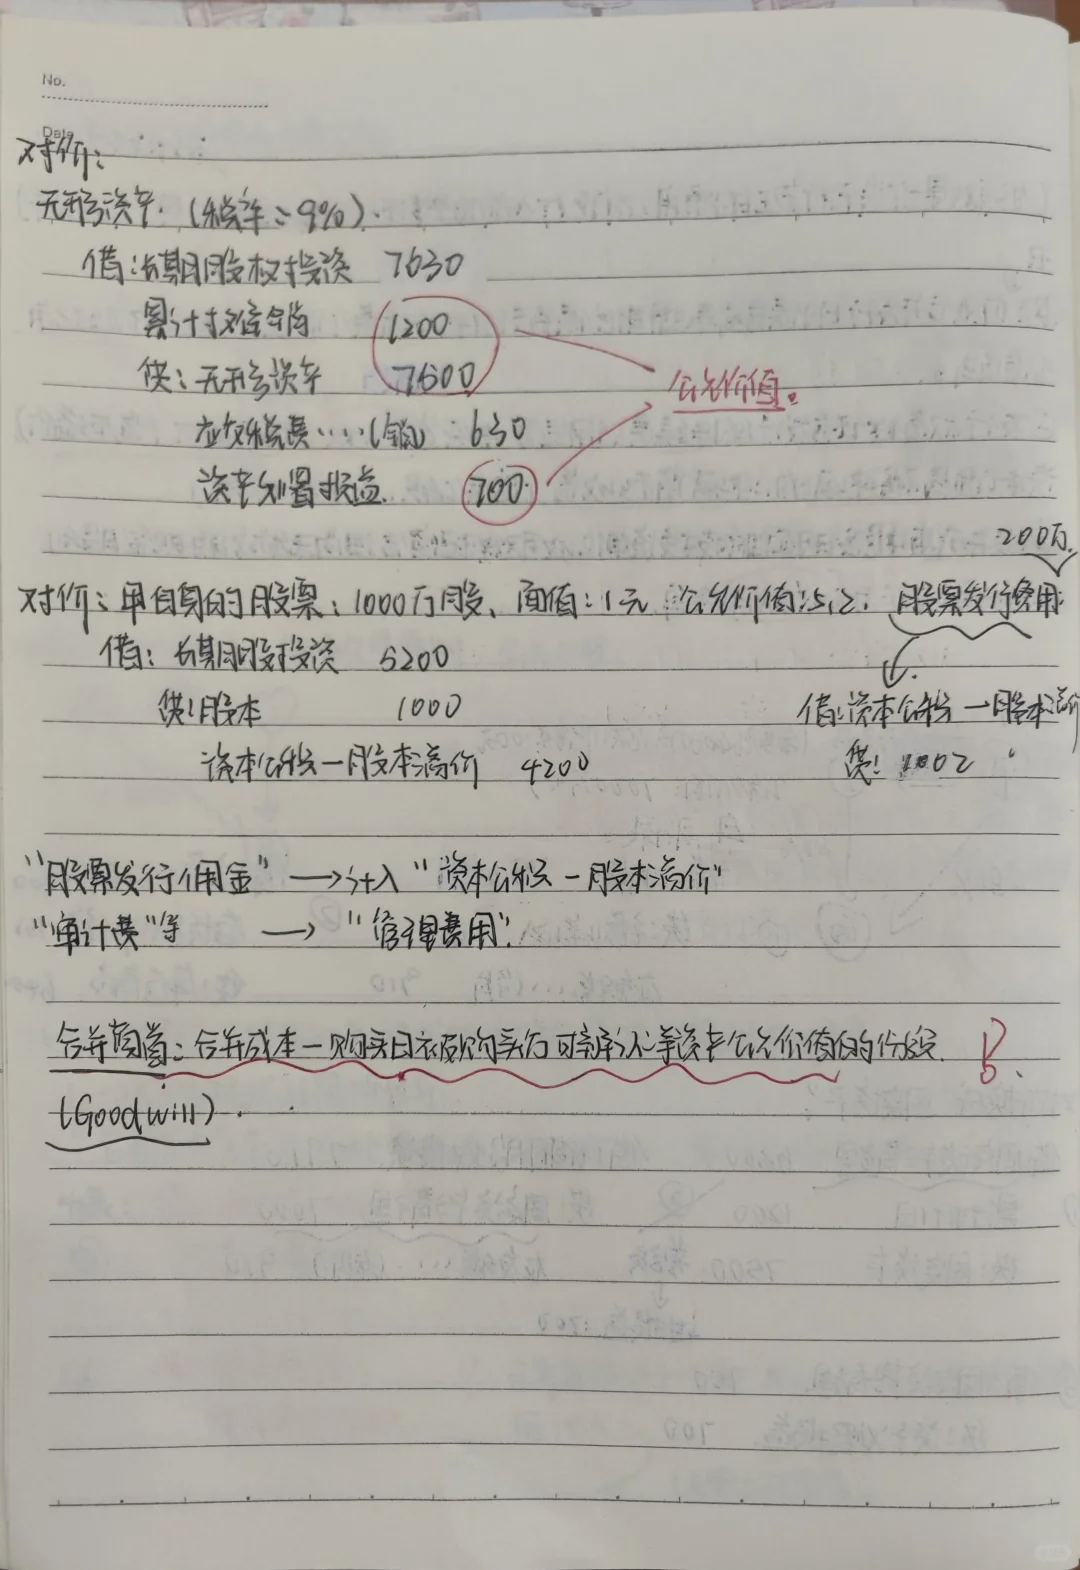 No.
Date
对价:
无形资产. (税率: 9%).
借:长期股权投资 7630
累计摊销 1200
贷:无形资产 7600
公允价值。
应交税费····(销) 630
资产处置损益. 700
200万.
对价:甲自身的股票:1000万股、面值:1元 公允价值:5.2. 股票发行费用
借: 长期股投资 5200
贷:股本 1000
借:资本公积—股本溢价
资本公积—股本溢价 4200
贷:
"股票发行佣金" →计入 "资本公积—股本溢价"
"审计费"等 → "管理费用".
合并商誉:合并成本—购买日应取购买方可辨认净资产公允价值的份额.
(Goodwill).